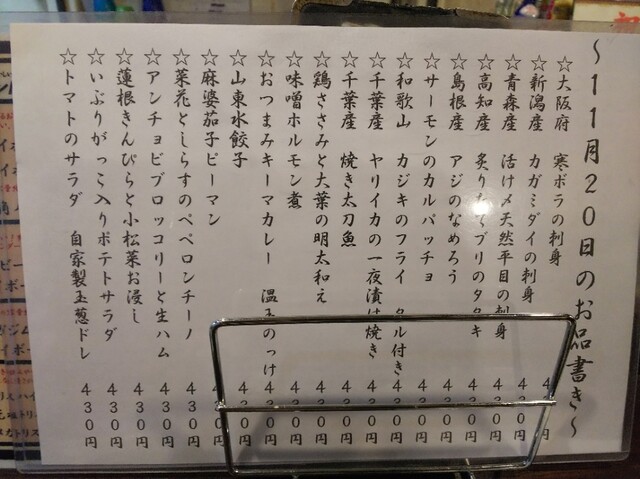 ～11月20日のお品書き～
☆大阪府 寒ボラの刺身 4
☆新潟産 カガミダイの刺身 430円
☆青森産 活け〆天然平目の刺身 430円
☆高知産 炙りたてブリのタタキ 430円
☆島根産 アジのなめろう 430円
☆サーモンのカルパッチョ 430円
☆和歌山 カジキのフライ タル付き 430円
☆千葉産 ヤリイカの一夜漬け焼き 430円
☆千葉産 焼き太刀魚 430円
☆鶏ささみと大葉の明太和え 430円
☆味噌ホルモン煮 430円
☆おつまみキーマカレー 温玉のっけ 430円
☆山東水餃子 430円
☆麻婆茄子ピーマン 430円
☆菜花としらすのペペロンチーノ 430円
☆アンチョビブロッコリーと生ハム 430円
☆蓮根きんぴらと小松菜お浸し 430円
☆いぶりがっこ入りポテトサラダ 430円
☆トマトのサラダ 自家製玉葱ドレ 430円